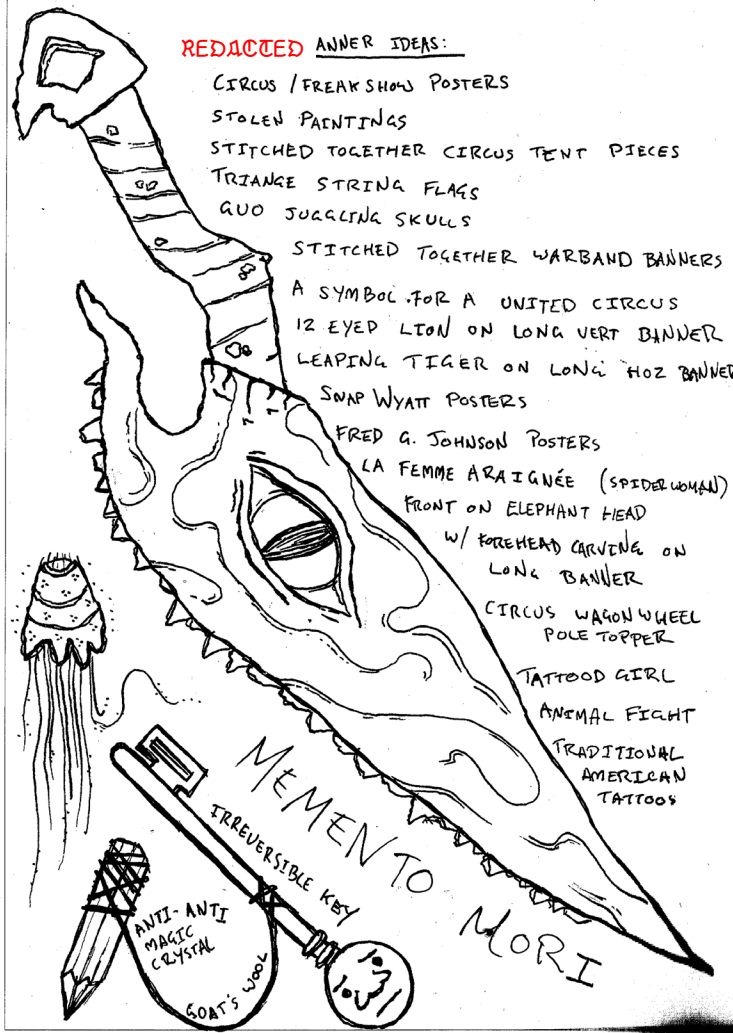 REDACTED ANNER IDEAS:
CIRCUS / FREAKSHOW POSTERS
STOLEN PAINTINGS
STITCHED TOGETHER CIRCUS TENT PIECES
TRIANGE STRING FLAGS
GUO JUGGLING SKULLS
STITCHED TOGETHER WARBAND BANNERS
A SYMBOL FOR A UNITED CIRCUS
12 EYED LION ON LONG VERT BANNER
LEAPING TIGER ON LONG HOZ BANNER
SNAP WYATT POSTERS
FRED G. JOHNSON POSTERS
LA FEMME ARAIGNÉE (SPIDERWOMAN)
FRONT ON ELEPHANT HEAD
W/ FOREHEAD CARVING ON
LONG BANNER
CIRCUS WAGON WHEEL
POLE TOPPER
TATTOOD GIRL
ANIMAL FIGHT
TRADITIONAL
AMERICAN
TATTOOS
MEMENTO MORI
IRREVERSIBLE KEY
ANTI-ANTI
MAGIC
CRYSTAL
GOAT'S WOOL